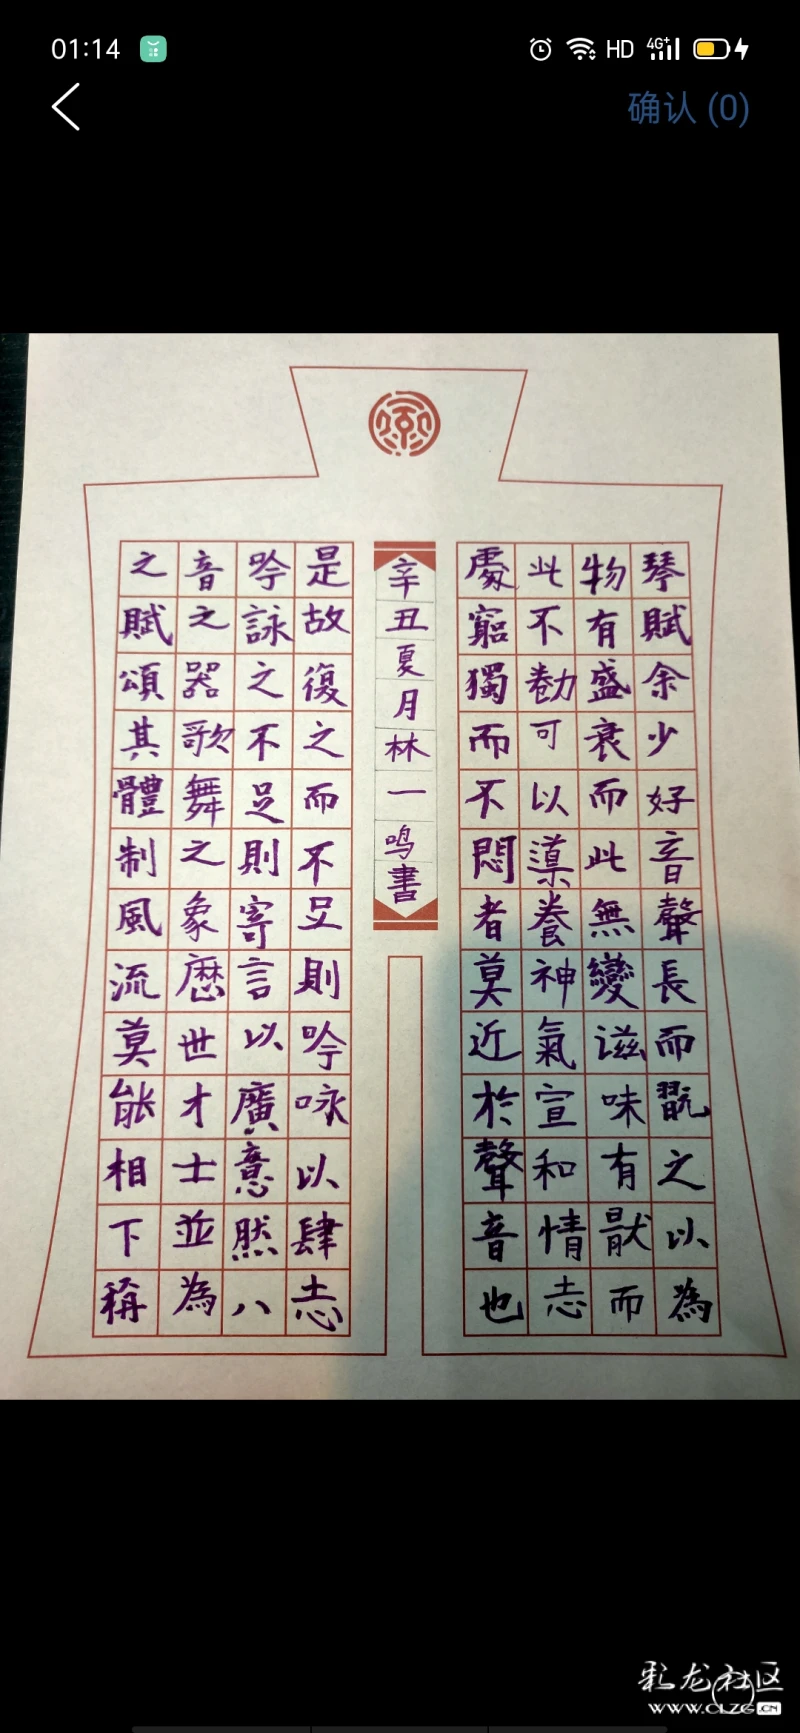 01:14 HD 4G+
确认 (0)
琴賦余少好音聲長而翫之以為
物有盛衰而此無變滋味有猒而
此不勌可以養神氣宣和情志
處窮獨而不悶者莫近於聲音也
辛丑夏月林一鸣書
是故復之而不足則吟咏以肆志
吟詠之不足則寄言以廣意然八
音之器歌舞之象歷世才士並為
之賦頌其體制風流莫能相下稱
彩龙社区
WWW.CLZG.CN